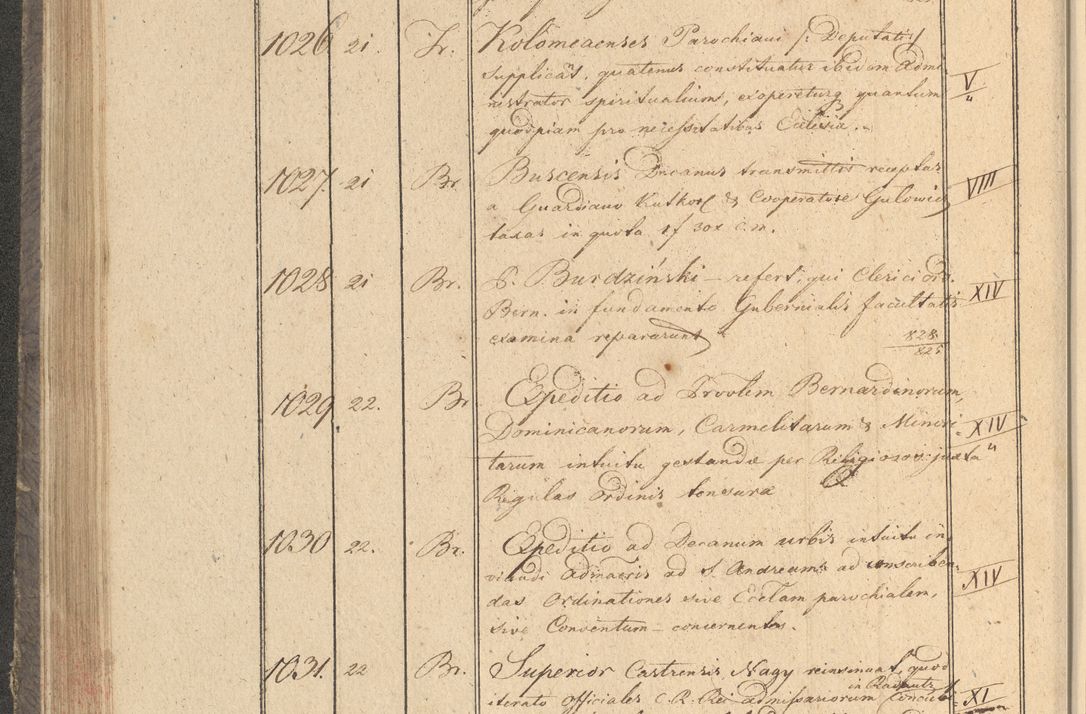 1026 21. Fr. Kolomeaenses Parochiani /: Deputati :/
supplicat, quatenus constituatur ibidem Admi-
nistrator spiritualium, exopereturq quantum V
quodpiam pro necessitatibus Ecclesiæ.
1027. 21 Br. Buscensis Decanus transmittis receptas
a Guardiano Kutkorz & Cooperatore Gulowicz VIII
taxas in quota 1f 30x C.M.
1028 21 Br. P. Burdziński – refert, qui Clerici Ord.
Bern. in fundamento Gubernialis facultatis XIV
examina repararunt
828
825
1029 22. Br. Expeditio ad Provlem Bernardinorum,
Dominicanorum, Carmelitarum & Minori- XIV
tarum intuitu gestandæ per Religiosos juxta
Regulas Ordinis tonsuræ
1030 22. Br. Expeditio ad Decanum urbis intuitu in-
viandi ad S. Andream ad conscriben-
das Ordinationes sive Eccl̄am parochialem, XIV
sive Conventum – concernentes.
1031. 22 Br. Superior Castrensis Nagy reinsinuat, quod
iterato officiales C. R. Rei admissariorum XI